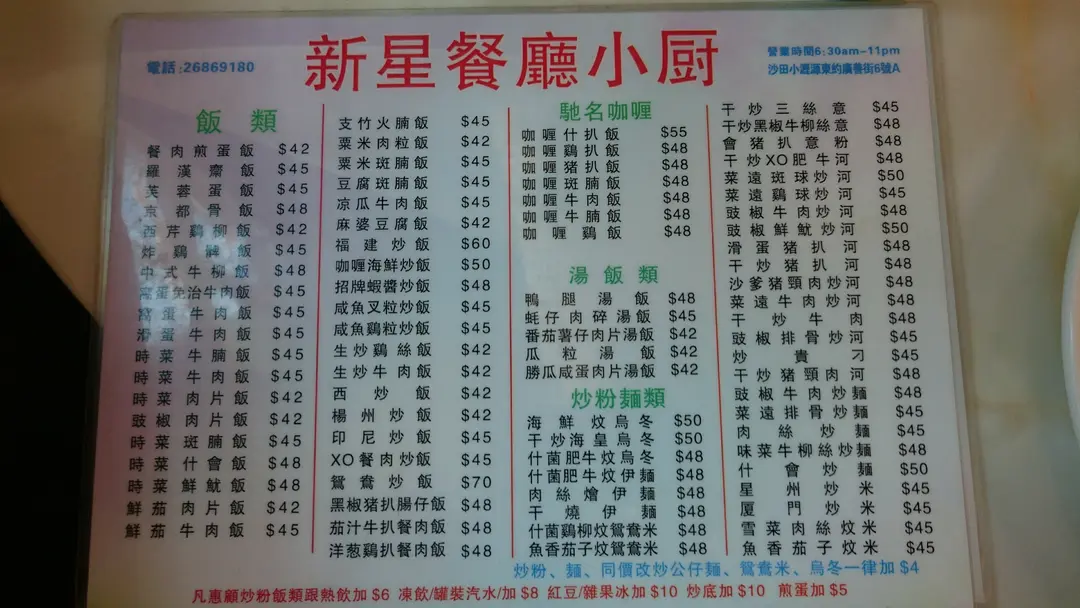 新星餐廳小厨
電話:26869180
營業時間6:30am-11pm
沙田小瀝源東約廣善街6號A
飯類
餐肉煎蛋飯 $42
羅漢齋飯 $45
芙蓉蛋飯 $45
京都骨飯 $48
西芹鷄柳飯 $42
炸鷄髀飯 $45
中式牛柳飯 $48
窩蛋免治牛肉飯 $45
窩蛋牛肉飯 $45
滑蛋牛肉飯 $45
時菜牛腩飯 $45
時菜牛肉飯 $45
時菜肉片飯 $42
豉椒肉片飯 $42
時菜斑腩飯 $45
時菜什會飯 $48
時菜鮮魷飯 $48
鮮茄肉片飯 $42
鮮茄牛肉飯 $45
支竹火腩飯 $45
粟米肉粒飯 $42
粟米斑腩飯 $45
豆腐斑腩飯 $45
凉瓜牛肉飯 $45
麻婆豆腐飯 $42
福建炒飯 $60
咖喱海鮮炒飯 $50
招牌蝦醬炒飯 $48
咸魚叉粒炒飯 $45
咸魚鷄粒炒飯 $45
生炒鷄絲飯 $42
生炒牛肉飯 $42
西炒飯 $42
楊州炒飯 $42
印尼炒飯 $45
XO餐肉炒飯 $45
鴛鴦炒飯 $70
黑椒猪扒腸仔飯 $48
茄汁牛扒餐肉飯 $48
洋葱鷄扒餐肉飯 $48
馳名咖喱
咖喱什扒飯 $55
咖喱鷄扒飯 $48
咖喱猪扒飯 $48
咖喱斑腩飯 $48
咖喱牛肉飯 $48
咖喱牛腩飯 $48
咖喱鷄飯 $48
湯飯類
鴨腿湯飯 $48
蚝仔肉碎湯飯 $45
番茄薯仔肉片湯飯 $42
瓜粒湯飯 $42
勝瓜咸蛋肉片湯飯 $42
炒粉麵類
海鮮炆烏冬 $50
干炒海皇烏冬 $50
什菌肥牛炆烏冬 $48
什菌肥牛炆伊麵 $48
肉絲燴伊麵 $48
干燒伊麵 $48
什菌鷄柳炆鴛鴦米 $48
魚香茄子炆鴛鴦米 $48
干炒三絲意 $45
干炒黑椒牛柳絲意 $48
會猪扒意粉 $48
干炒XO肥牛河 $48
菜遠斑球炒河 $50
菜遠鷄球炒河 $45
豉椒牛肉炒河 $48
豉椒鮮魷炒河 $50
滑蛋猪扒河 $48
干炒猪扒河 $48
沙爹猪頸肉炒河 $48
菜遠牛肉炒河 $48
干炒牛肉 $48
豉椒排骨炒河 $45
炒貴刁 $45
干炒猪頸肉河 $48
豉椒牛肉炒麵 $48
菜遠排骨炒麵 $45
肉絲炒麵 $45
味菜牛柳絲炒麵 $48
什會炒麵 $50
星州炒米 $45
厦門炒米 $45
雪菜肉絲炆米 $45
魚香茄子炆米 $45
炒粉、麵、同價改炒公仔麵、鴛鴦米、烏冬一律加 $4
凡惠顧炒粉飯類跟熱飲加 $6 凍飲/罐裝汽水/加 $8 紅豆/雜果冰加 $10 炒底加 $10 煎蛋加 $5